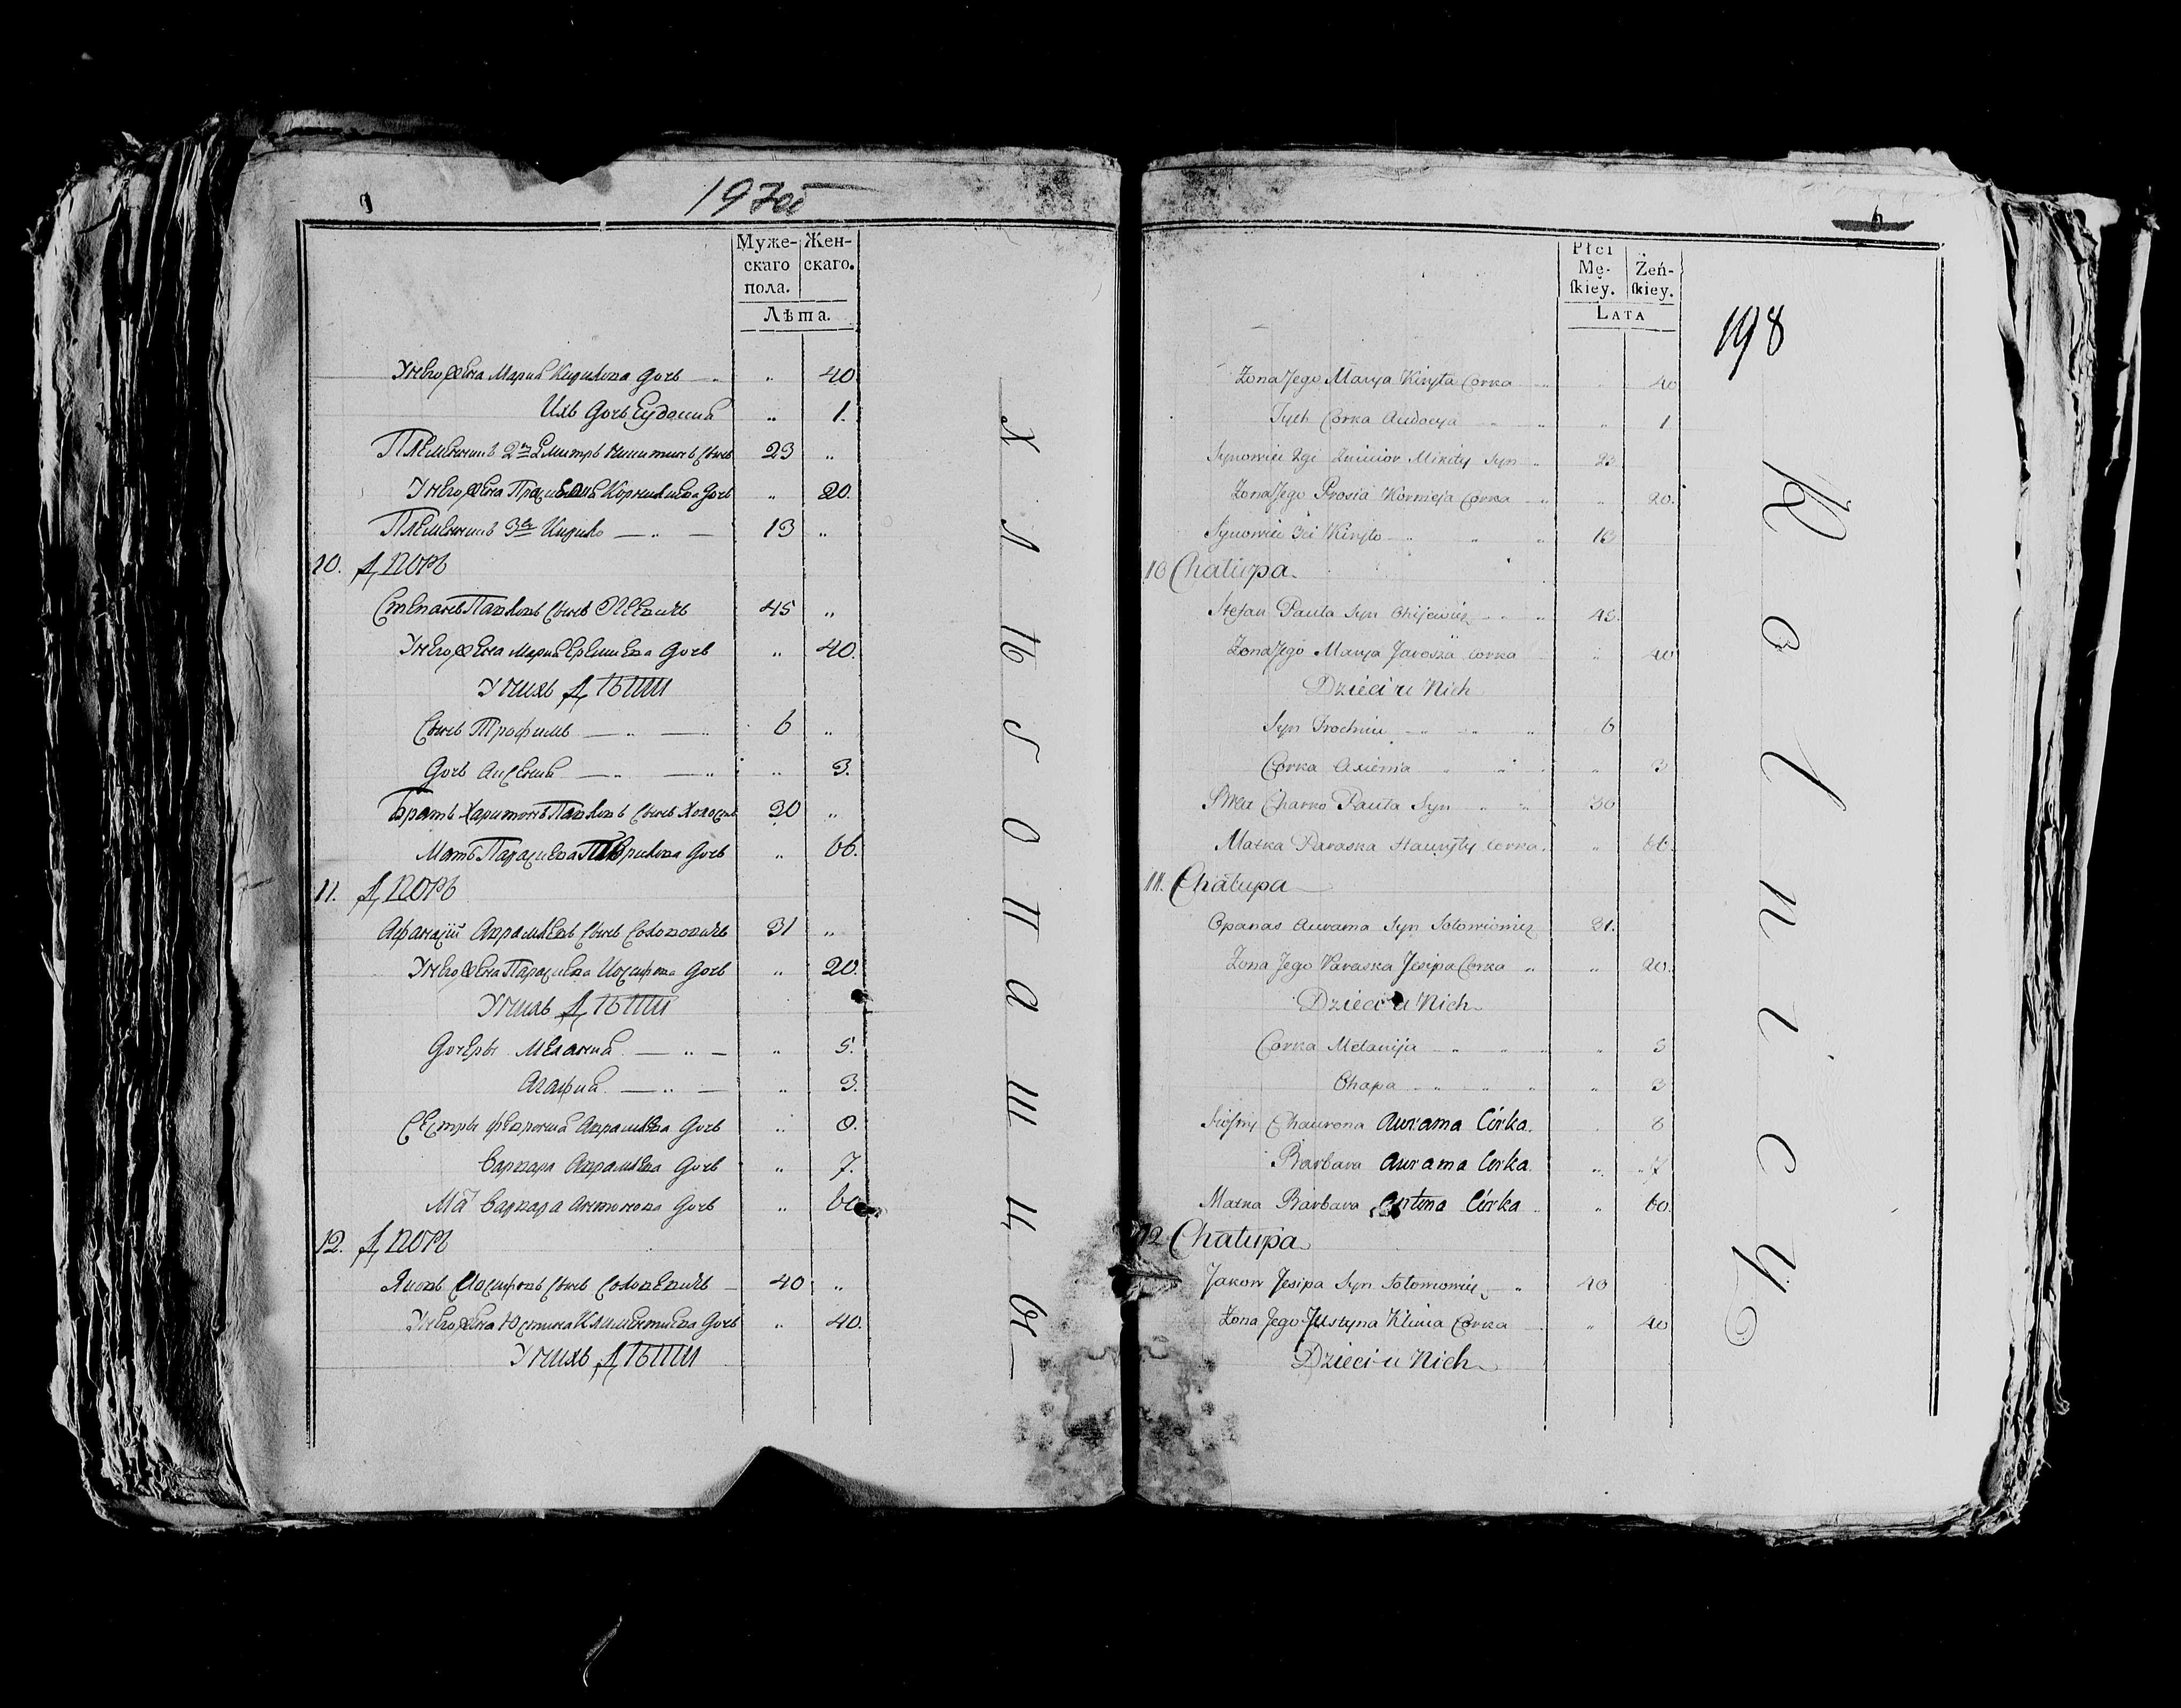 197об
Муже- Жен-
скаго скаго.
пола.
Лѣта.
У него жена Мария Кирилова дочь — " 40
Ихъ дочь Еудокия " 1.
Племянникъ 2й Дмитръ Никитинъ сынъ 23 "
У него жена Корнилиева дочь " 20.
Племянникъ 3й Кирило — " — 13 "
10. ДВОРЪ
Степанъ Павловъ сынъ 45 "
У него жена Мария дочь " 40.
У нихъ ДѢТИ
Сынъ Трофимъ — " — " 6 "
Дочь Аксения — " — " " 3.
Братъ Харитонъ Павловъ сынъ Холостъ 20 "
Мать Параскева дочь " 66.
11. ДВОРЪ
Афанасій Аврамиевъ сынъ Солововичъ 31 "
У него жена Параскева Иосифова дочь " 20.
У нихъ ДѢТИ
Дочери Мелания — " — " 5.
Агафия — " — " 3.
Сестры Феврония Аврамиева дочь " 8.
Варвара Аврамиева дочь " 7.
Мать Варвара Антонова дочь " 60
12. ДВОРЪ
Яковъ Иосифовъ сынъ Соловевичъ — 40 "
У него жена Юстина Климентиева дочь " 40.
У нихъ ДѢТИ
Х л ѣ б о п а ш ц ы
Płci
Mę- Żeń-
ſkiey. ſkiey.
LATA
198
Żona Jego Marya Kiryła Corka " 40
Tych Corka Audocya " " 1
Synowiec 2gi Mikity Syn " 23
Żona Jego Prosia Kornieja Corka " " 20.
Synowiec 3ci Kiryło " " " 13
10 Chałupa
Stefan Pauła Syn " " 45.
Żona Jego Marya Jarosza Corka " 40
Dzieci u Nich
Syn " " " 6
Corka Axienia " " " " 3
Brat Charko Pauła Syn " " 30
Matka Paraska Hauryły Corka. " 66.
11. Chałupa
Opanas Aurama Syn Sołowiowicz 31.
Żona Jego Paraska Jesipa Corka " " 20.
Dzieci u Nich
Corka Melanija " " " " 5
Ohapa " " " " " 3
Siostry Chaurona Aurama Córka. 8
Barbara Aurama Córka. " 7
Matka Barbara Córka " 60
12 Chałupa
Jakow Jesipa Syn Sołowiowicz " 40
Żona Jego Justyna Klima Corka " 40
Dzieci u Nich
R o l n i c y